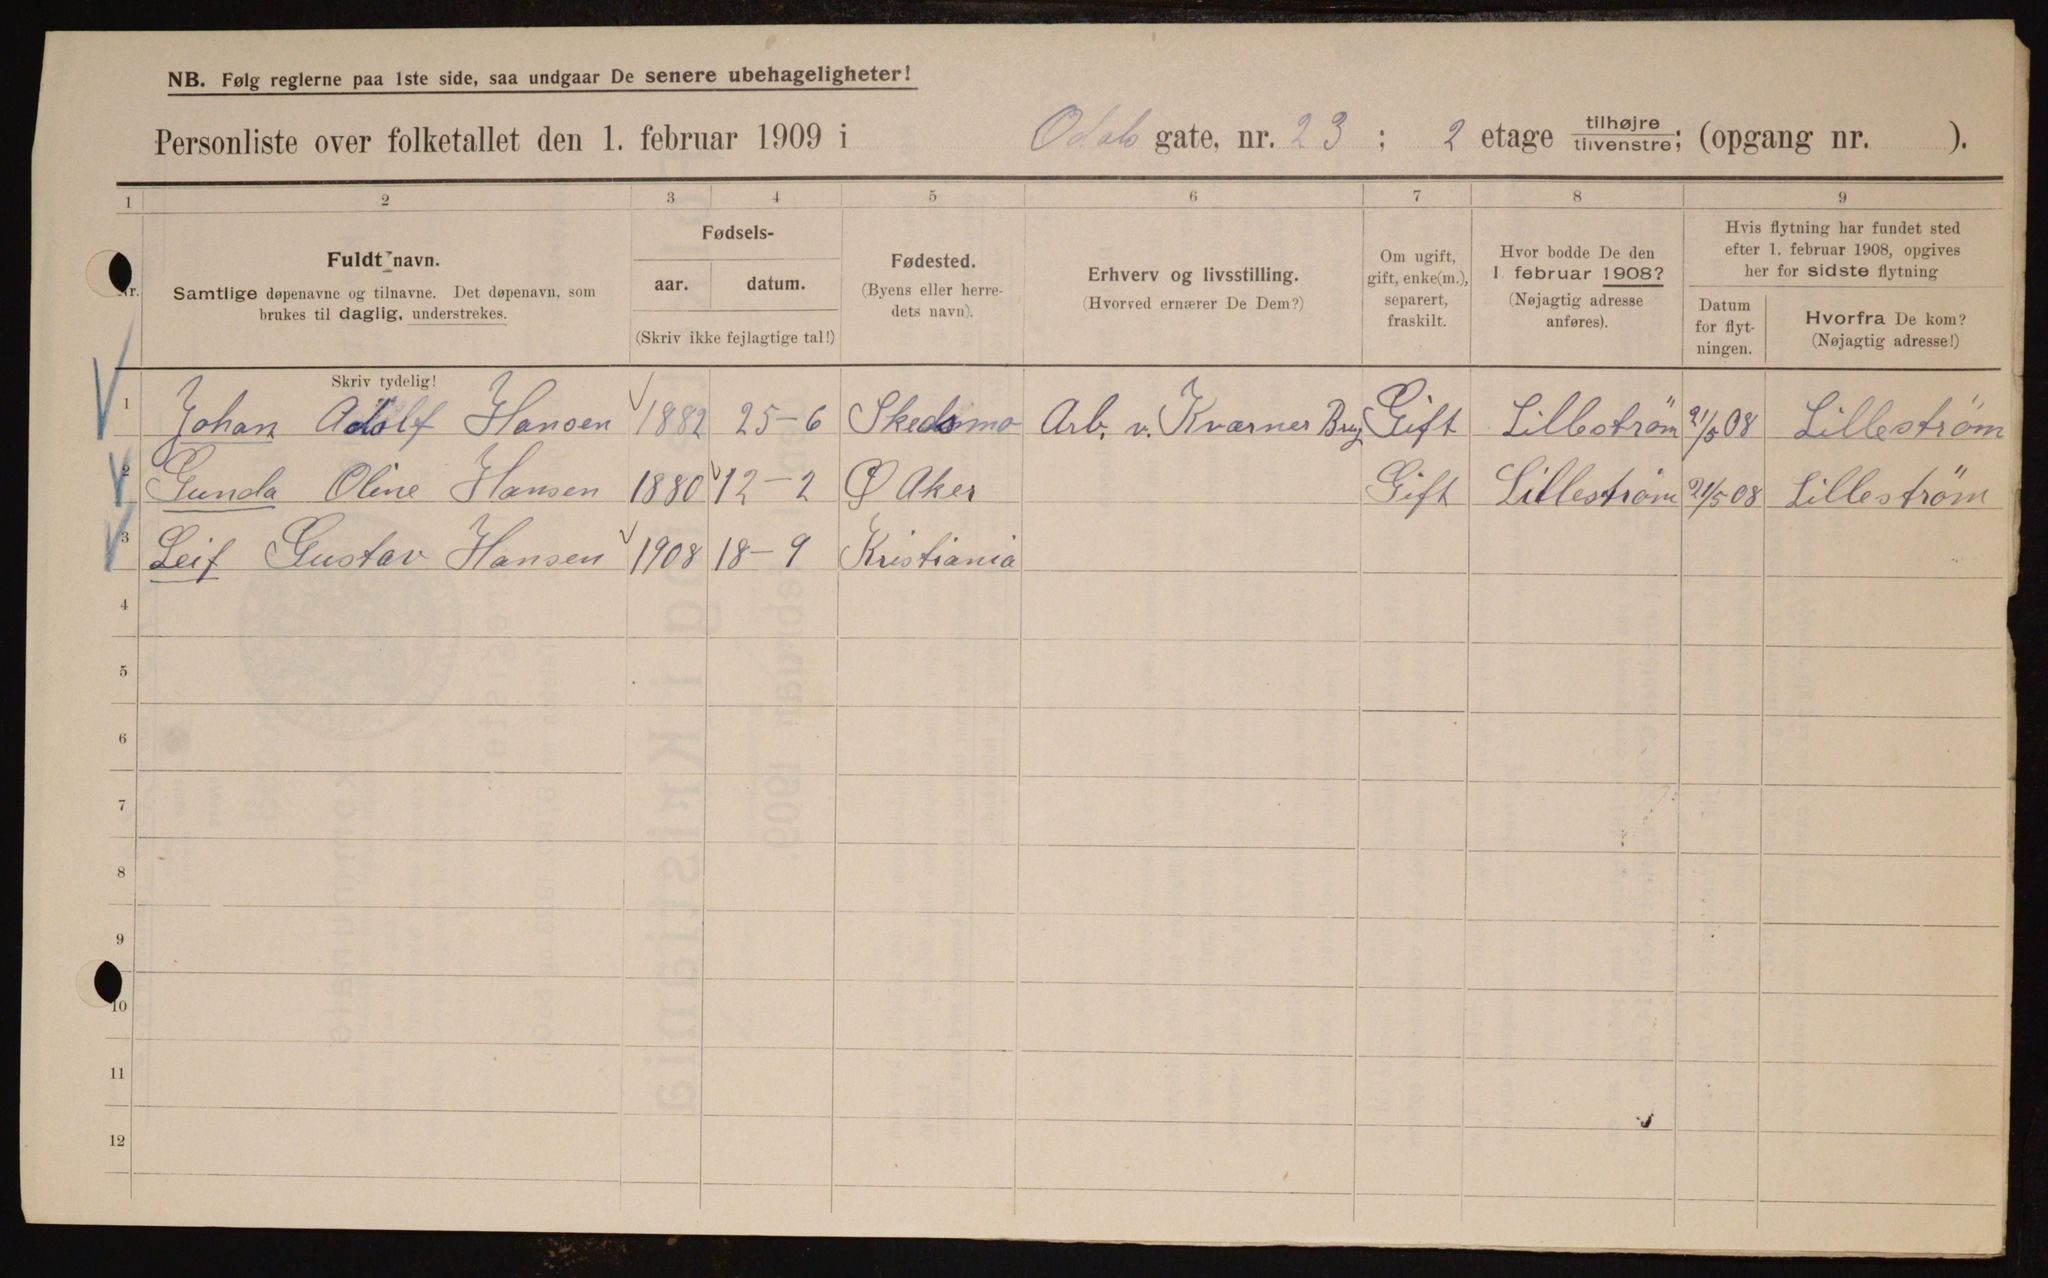 NB. Følg reglerne paa 1ste side, saa undgaar De senere ubehageligheter!
Personliste over folketallet den 1. februar 1909 i Odals gate, nr. 23 ; 2 etage tilhøjre tilvenstre; (opgang nr. ).
1 2 3 4 5 6 7 8 9
Nr.
Fuldt navn.
Samtlige døpenavne og tilnavne. Det døpenavn, som
brukes til daglig, understrekes.
Fødsels-
aar. datum.
(Skriv ikke fejlagtige tal!)
Fødested.
(Byens eller herre-
dets navn).
Erhverv og livsstilling.
(Hvorved ernærer De Dem?)
Om ugift,
gift, enke(m.),
separert,
fraskilt.
Hvor bodde De den
1 februar 1908?
(Nøjagtig adresse
anføres).
Hvis flytning har fundet sted
efter 1. februar 1908, opgives
her for sidste flytning
Datum
for flyt-
ningen.
Hvorfra De kom?
(Nøjagtig adresse!)
Skriv tydelig!
1 Johan Adolf Hansen 1882 25-6 Skedsmo Arb. v. Kværner Brug Gift Lilleström 21/5 08 Lilleström
2 Gunda Oline Hansen 1880 12-2 Ø Aker Gift Lilleström 21/5 08 Lilleström
3 Leif Gustav Hansen 1908 18-9 Kristiania
4
5
6
7
8
9
10
11
12